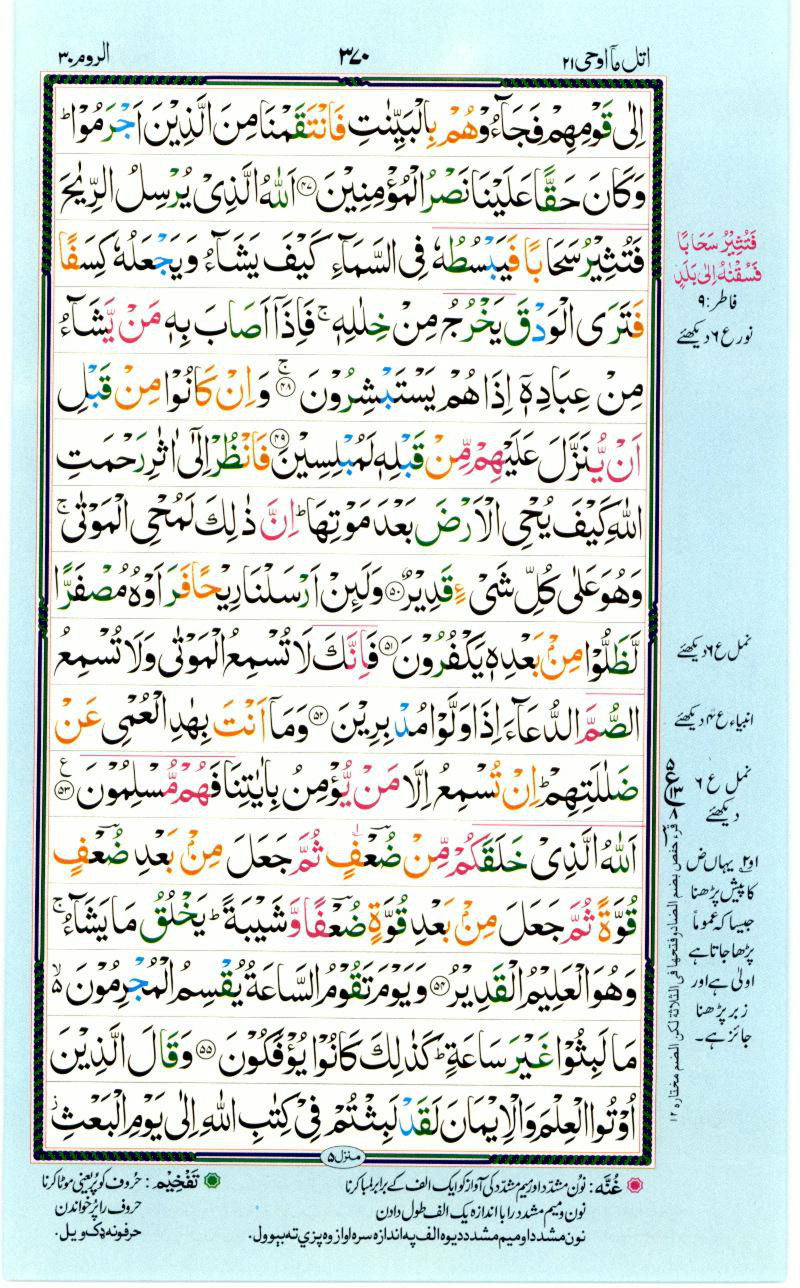 اتل مآ اوحی ۲۱
۳۷۰
الروم ۳۰
اِلٰى قَوْمِهِمْ فَجَآءُوْهُمْ بِالْبَيِّنٰتِ فَانْتَقَمْنَا مِنَ الَّذِيْنَ اَجْرَمُوْا ؕ
وَكَانَ حَقًّا عَلَيْنَا نَصْرُ الْمُؤْمِنِيْنَ ﴿۴۷﴾ اَللّٰهُ الَّذِىْ يُرْسِلُ الرِّيٰحَ
فَتُثِيْرُ سَحَابًا فَيَبْسُطُهٗ فِى السَّمَآءِ كَيْفَ يَشَآءُ وَيَجْعَلُهٗ كِسَفًا
فَتَرَى الْوَدْقَ يَخْرُجُ مِنْ خِلٰلِهٖ ۚ فَاِذَآ اَصَابَ بِهٖ مَنْ يَّشَآءُ
مِنْ عِبَادِهٖٓ اِذَا هُمْ يَسْتَبْشِرُوْنَ ﴿۴۸﴾ ۚ وَاِنْ كَانُوْا مِنْ قَبْلِ
اَنْ يُّنَزَّلَ عَلَيْهِمْ مِّنْ قَبْلِهٖ لَمُبْلِسِيْنَ ﴿۴۹﴾ فَانْظُرْ اِلٰٓى اٰثٰرِ رَحْمَتِ
اللّٰهِ كَيْفَ يُحْىِ الْاَرْضَ بَعْدَ مَوْتِهَا ؕ اِنَّ ذٰلِكَ لَمُحْىِ الْمَوْتٰى ۚ
وَهُوَ عَلٰى كُلِّ شَىْءٍ قَدِيْرٌ ﴿۵۰﴾ وَلَئِنْ اَرْسَلْنَا رِيْحًا فَرَاَوْهُ مُصْفَرًّا
لَّظَلُّوْا مِنْۢ بَعْدِهٖ يَكْفُرُوْنَ ﴿۵۱﴾ فَاِنَّكَ لَا تُسْمِعُ الْمَوْتٰى وَلَا تُسْمِعُ
الصُّمَّ الدُّعَآءَ اِذَا وَلَّوْا مُدْبِرِيْنَ ﴿۵۲﴾ وَمَآ اَنْتَ بِهٰدِ الْعُمْىِ عَنْ
ضَلٰلَتِهِمْ ؕ اِنْ تُسْمِعُ اِلَّا مَنْ يُّؤْمِنُ بِاٰيٰتِنَا فَهُمْ مُّسْلِمُوْنَ ﴿۵۳﴾ ع
اَللّٰهُ الَّذِىْ خَلَقَكُمْ مِّنْ ضُعْفٍ ثُمَّ جَعَلَ مِنْۢ بَعْدِ ضُعْفٍ
قُوَّةً ثُمَّ جَعَلَ مِنْۢ بَعْدِ قُوَّةٍ ضُعْفًا وَّشَيْبَةً ؕ يَخْلُقُ مَا يَشَآءُ ۚ
وَهُوَ الْعَلِيْمُ الْقَدِيْرُ ﴿۵۴﴾ وَيَوْمَ تَقُوْمُ السَّاعَةُ يُقْسِمُ الْمُجْرِمُوْنَ ۙ
مَا لَبِثُوْا غَيْرَ سَاعَةٍ ؕ كَذٰلِكَ كَانُوْا يُؤْفَكُوْنَ ﴿۵۵﴾ وَقَالَ الَّذِيْنَ
اُوْتُوا الْعِلْمَ وَالْاِيْمَانَ لَقَدْ لَبِثْتُمْ فِىْ كِتٰبِ اللّٰهِ اِلٰى يَوْمِ الْبَعْثِ ز
منزل ۵
فَتُثِيْرُ سَحَابًا
فَسُقْنٰهُ اِلٰى بَلَدٍ
فاطر: ۹
نور ع ۶ دیکھئے
نمل ع ۶ دیکھئے
انبیاء ع ۴ دیکھئے
نمل ع ۶
دیکھئے
او۲ یہاں ض
کا پیش پڑھنا
جیسا کہ عموماً
پڑھا جاتا ہے
اولیٰ ہے اور
زبر پڑھنا
جائز ہے۔
قرأ حفص بضم الضاد وفتحها فی الثلاثة لكن الضم مختاره ۱۲
غُنَّه: نون مشدد اور میم مشدد کی آواز کو ایک الف کے برابر لمبا کرنا
نون و میم مشدد را با اندازه یک الف طول دادن
نون مشدد او میم مشدد دیوه الف په اندازه سره اواز وه پزې ته بیوول.
تفخیم: حروف کو پُر یعنی موٹا کرنا
حروف را پُر خواندن
حرفونه ډک ویل.